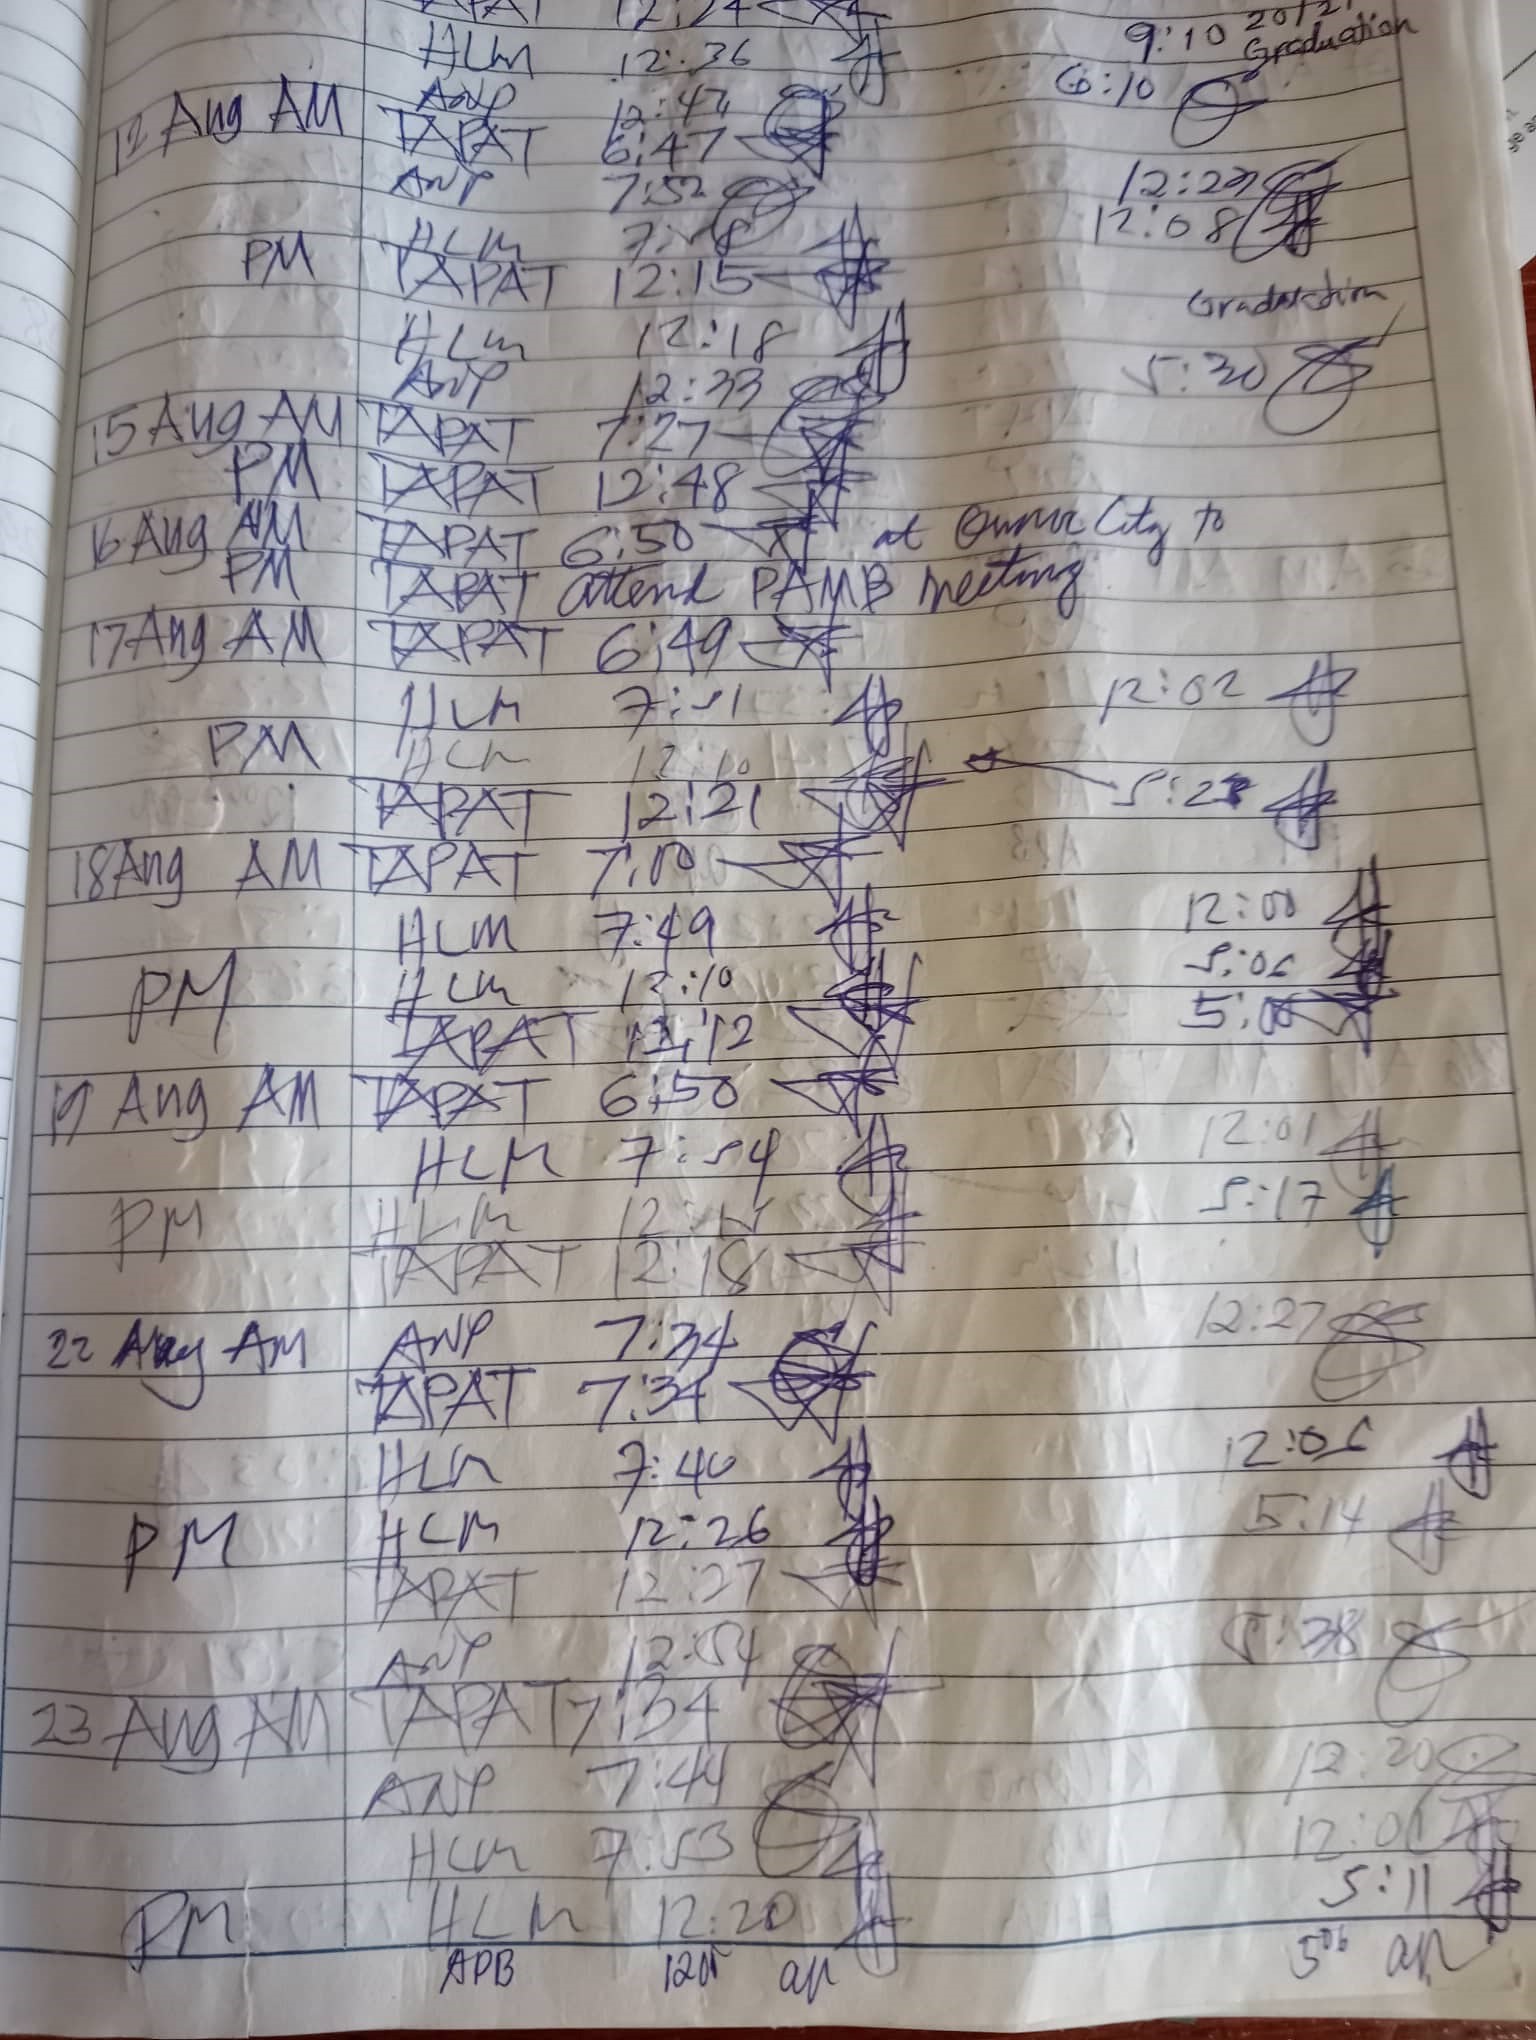 TAPAT 12:24
9:10 Graduation
HLM 12:36
6:10
ANP 12:47
12 Aug AM TAPAT 6:47
ANP 7:52 12:23
HLM 12:08
PM TAPAT 12:15
Graduation
HLM 12:18
ANP 12:33 5:30
15 Aug AM TAPAT 7:27
PM TAPAT 12:48
16 Aug AM TAPAT 6:50 at City to
PM TAPAT attend PAMB meeting
17 Aug AM TAPAT 6:49
HLM 7:51 12:02
PM HLM 12:10
TAPAT 12:21
18 Aug AM TAPAT 7:00
HLM 7:49 12:00
PM HLM 12:10 5:06
TAPAT 5:00
19 Aug AM TAPAT 6:50
HLM 7:54 12:01
PM HLM 5:17
TAPAT 12:18
22 Aug AM ANP 7:34 12:27
TAPAT 7:34
HLM 7:40 12:06
PM HLM 12:26 5:14
TAPAT 12:27
ANP 12:54 5:38
23 Aug AM TAPAT 7:34
ANP 7:44 12:20
HLM 7:53
PM HLM 12:20 5:11
APB 1205 an 506 an